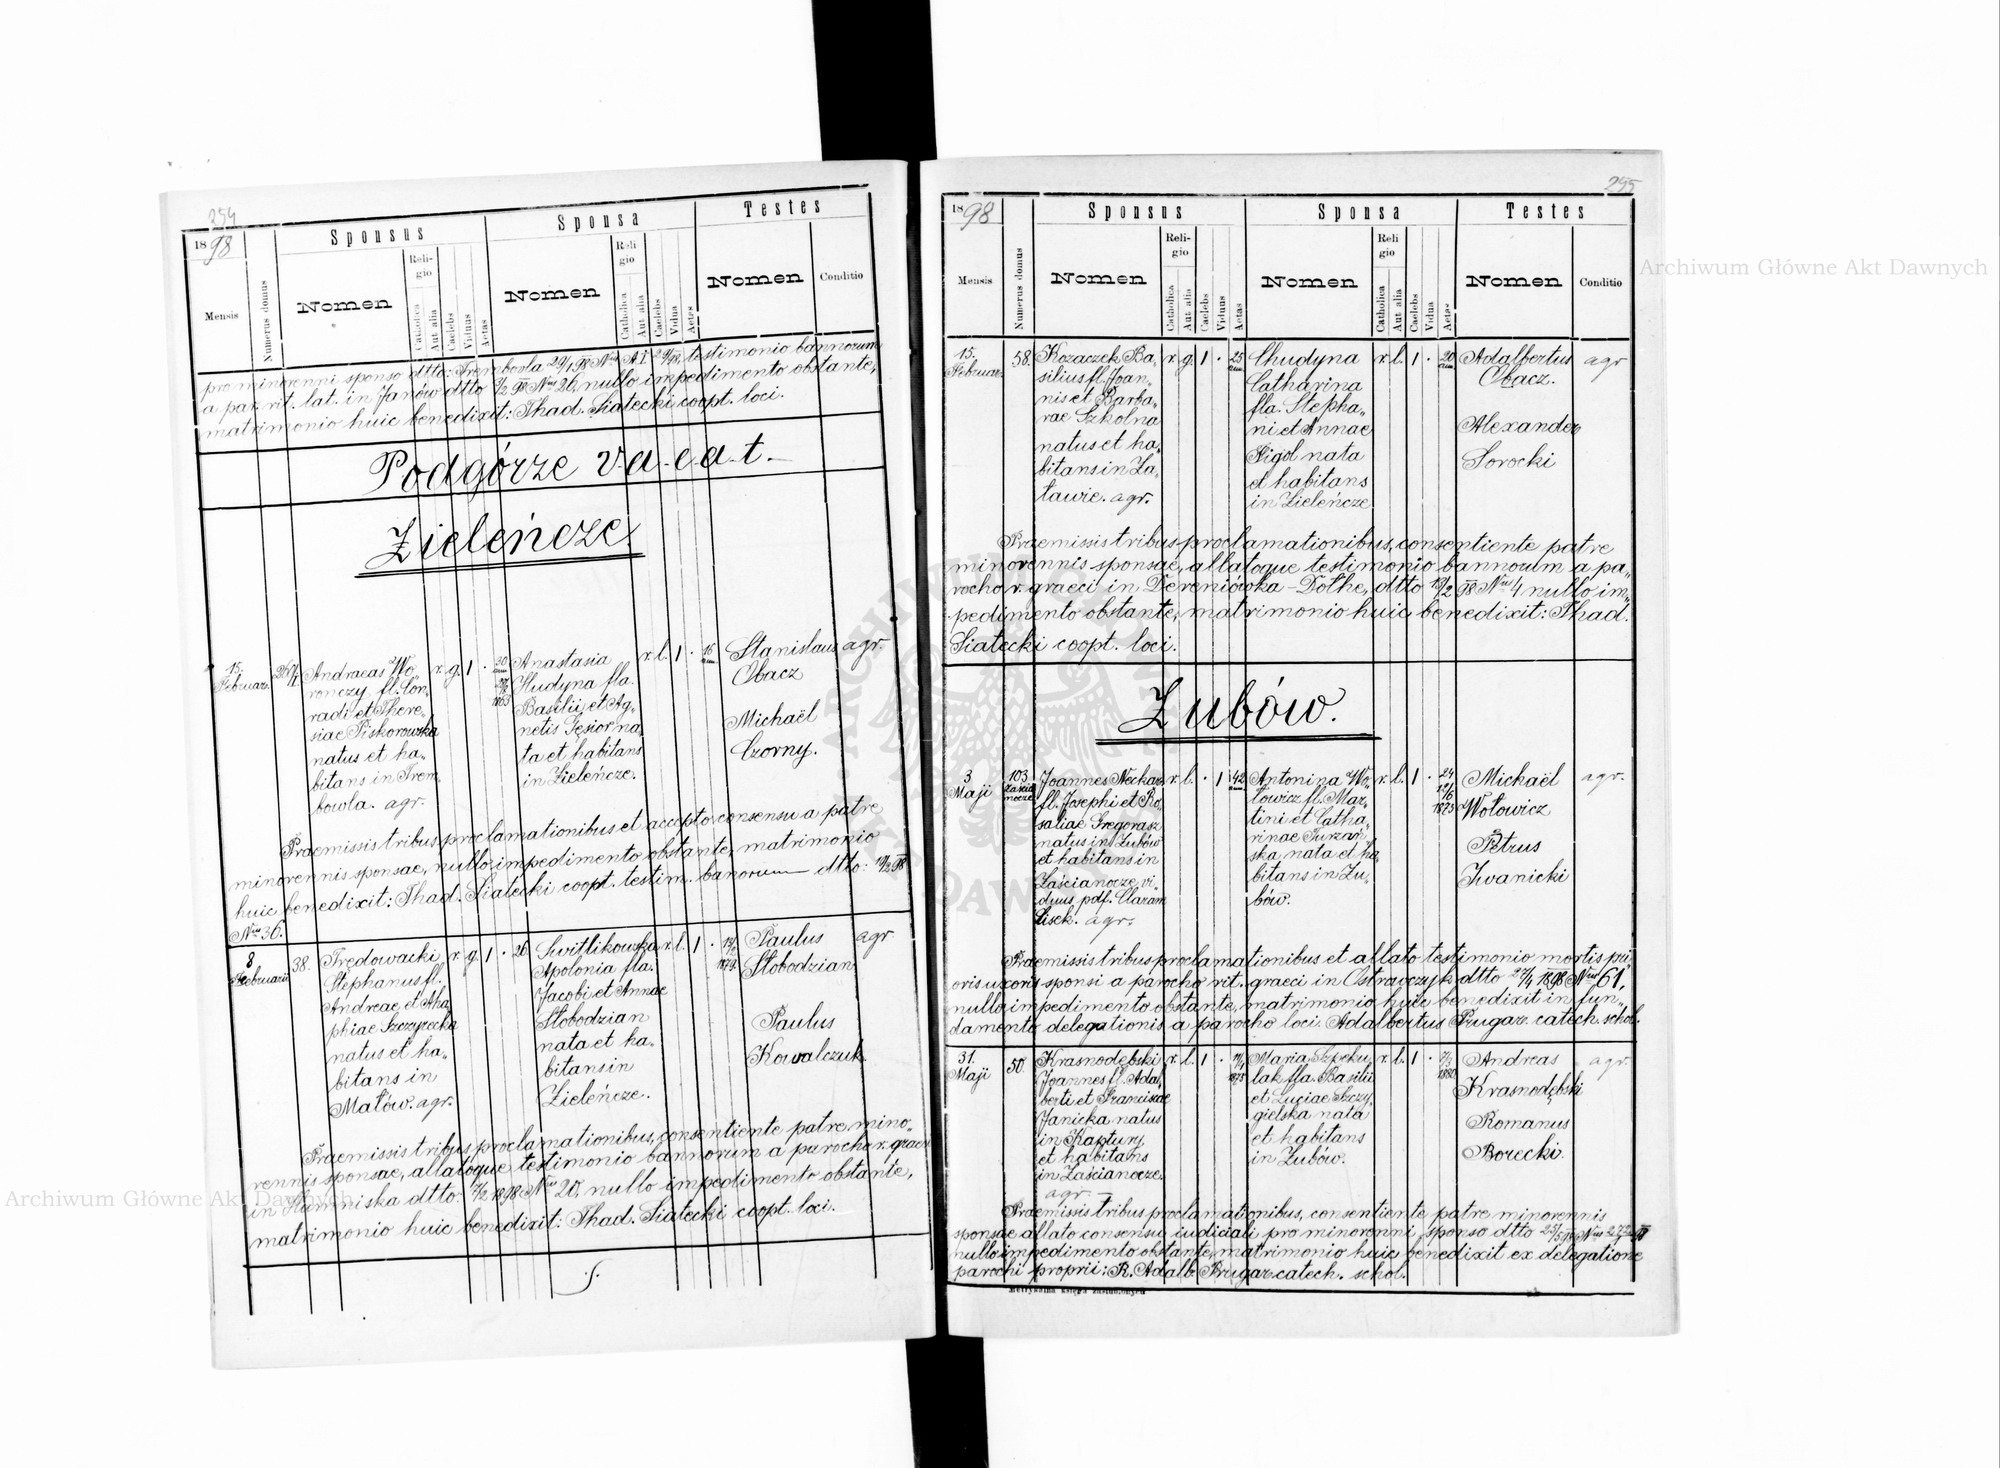 254
1898
Sponsus
Sponsa
Testes
Mensis
Numerus domus
Nomen
Religio
Catholica
Aut alia
Caelebs
Viduus
Aetas
Nomen
Religio
Catholica
Aut alia
Caelebs
Vidua
Aetas
Nomen
Conditio
pro minorenni sponso dtto: Trembowla
testimonio bannorum
a par. rit. lat. in Janów dtto
nullo impedimento obstante,
matrimonio huic benedixit: Thad. Siatecki coopt. loci.
Podgórze vacat.
Zieleńcze
15.
Februar.
Andreas Wo„
ronczy fl. Con„
radi et There„
siae Piskorowska
natus et ha„
bitans in Trem„
bowla. agr.
r. g. 1 .
30
Anastasia
Hudyna fla.
Basilii et Ag„
netis Gęsior na„
ta et habitans
in Zieleńcze.
r. l. 1 .
16
Stanislaus
Obacz
agr.
Michaël
Czorny.
Praemissis tribus proclamationibus et accepto consensu a patre
minorennis sponsae, nullo impedimento obstante, matrimonio
huic benedixit: Thad. Siatecki coopt. testim. banorum dtto:
Nrus 36.
8
Februarii
38.
Trędowacki
Stephanus fl.
Andreae et Aha„
phiae Szczyrecka
natus et ha„
bitans in
Małów. agr.
r. g. 1 . 26.
Switlikowska
Apolonia fla.
Jacobi et Annae
Słobodzian
nata et ha„
bitans in
Zieleńcze.
r. l. 1 .
Paulus
Słobodzian
agr
Paulus
Kowalczuk
Praemissis tribus proclamationibus, consentiente patre mino„
rennis sponsae, allatoque testimonio bannorum a parocho r. graeci
in Humniska dtto: 7/2 1898 Nrus 20, nullo impedimento obstante,
matrimonio huic benedixit: Thad. Siatecki coopt. loci.
255
1898
Sponsus
Sponsa
Testes
Mensis
Numerus domus
Nomen
Religio
Catholica
Aut alia
Caelebs
Viduus
Aetas
Nomen
Religio
Catholica
Aut alia
Caelebs
Vidua
Aetas
Nomen
Conditio
15.
Februar.
58.
Kozaczek Ba„
silius fl. Joan„
nis et Barba„
rae Szkolna
natus et ha„
bitans in Za„
ławie. agr.
r. g. 1 . 25
Chudyna
Catharina
fla. Stepha„
ni et Annae
Figol nata
et habitans
in Zieleńcze
r. l. 1 . 20
Adalbertus
Obacz.
agr
Alexander
Sorocki
Praemissis tribus proclamationibus, consentiente patre
minorennis sponsae, allatoque testimonio bannorum a pa„
rocho r. graeci in Dereniówka-Dołhe, dtto
nullo im„
pedimento obstante, matrimonio huic benedixit: Thad.
Siatecki coopt. loci.
Zubów.
3
Maji
103
Zaścia
nocze
Joannes Neckar
fl. Josephi et Ro„
saliae Gregorasz
natus in Zubów
et habitans in
Zaścianocze, vi„
duus pdf. Claram
Lisek. agr.
r. l. . 1 42
Antonina Wo„
łowicz fl. Mar„
tini et Catha„
rinae Turzań„
ska, nata et ha„
bitans in Zu„
bów.
r. l. 1 .
24
12/6
1873
Michaël
Wołowicz
agr.
Petrus
Iwanicki
Praemissis tribus proclamationibus et allato testimonio mortis pri„
oris uxoris sponsi a parocho rit. graeci in Ostrowczyk dtto 27/4 1898 Nrus 61,
nullo impedimento obstante, matrimonio huic benedixit in fun„
damento delegationis a parocho loci. Adalbertus Prugar. catech. schol.
31.
Maji
50.
Krasnodębski
Joannes fl. Adal„
berti et Franciscae
Janicka natus
in Kaptury
et habitans
in Zaścianocze.
agr.
r. l. 1 .
Maria Szpeku„
lak fla. Basilii
et Luciae Szczy„
gielska nata
et habitans
in Zubów.
r. l. 1 .
Andreas
Krasnodębski
agr.
Romanus
Borecki.
Praemissis tribus proclamationibus, consentiente patre minorennis
sponsae allato consensu iudiciali pro minorenni sponso dtto
nullo impedimento obstante, matrimonio huic benedixit ex delegatione
parochi proprii: R. Adalb. Prugar. catech. schol.
Metrykalna księga zaślubionych
Archiwum Główne Akt Dawnych
Archiwum Główne Akt Dawnych